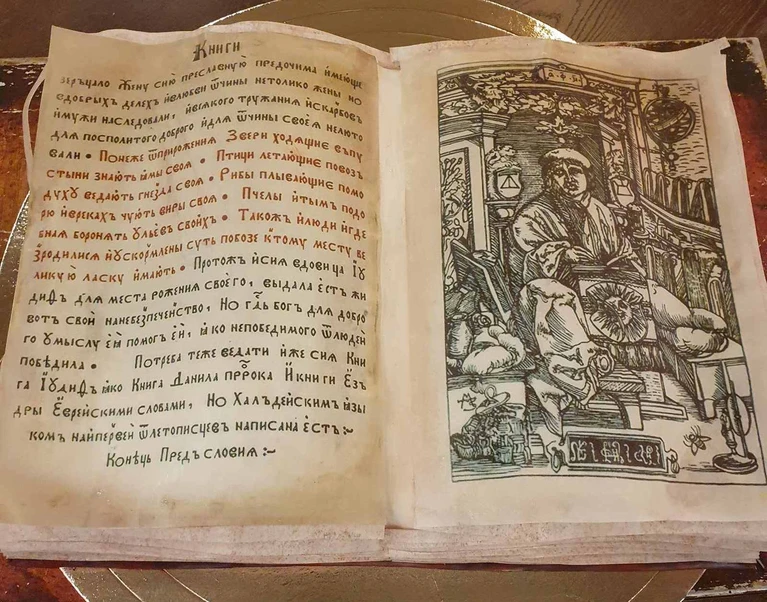 Книги
зерьцало Жену сию преславную предочима имеюще
вдобрыхъ делех ивлюбви ѿчины нетолико жены но
имужи наследовали, ивсякого тружания искарбовъ
для посполитого доброго идля ѿчины своея нелюто
вали • Понеже ѿприрожения Звери ходящие въпу
стыни знають ямы своя • Птици летающие повозъ
духу ведають гнезда своя • Рибы плывающие помо
рю иврекахъ чують виры своя • Пчелы итымъ подо
бная боронять ульевъ своихъ • Такожъ илюди игде
зродилися иускормлены суть побозе ктому месту ве
ликую ласку имають • Протожъ исия вдовица Іу
диѳъ для места рожения своего, выдала естъ жи
вотъ свой нанебезпеченство, Но гд҃ь богъ для добро
го умыслу ея помогъ ей, яко непобедимого ѿлюдей
победила • Потреба теже ведати иже сия Кни
га Іудиѳъ яко Книга Данила прⷪрока И книги Ёзъ
дры Еврейскими словами, Но Халъдейскимъ язы
комъ найпервей ѿлетописцевъ написана естъ:~
Конѣць Предъсловия:~